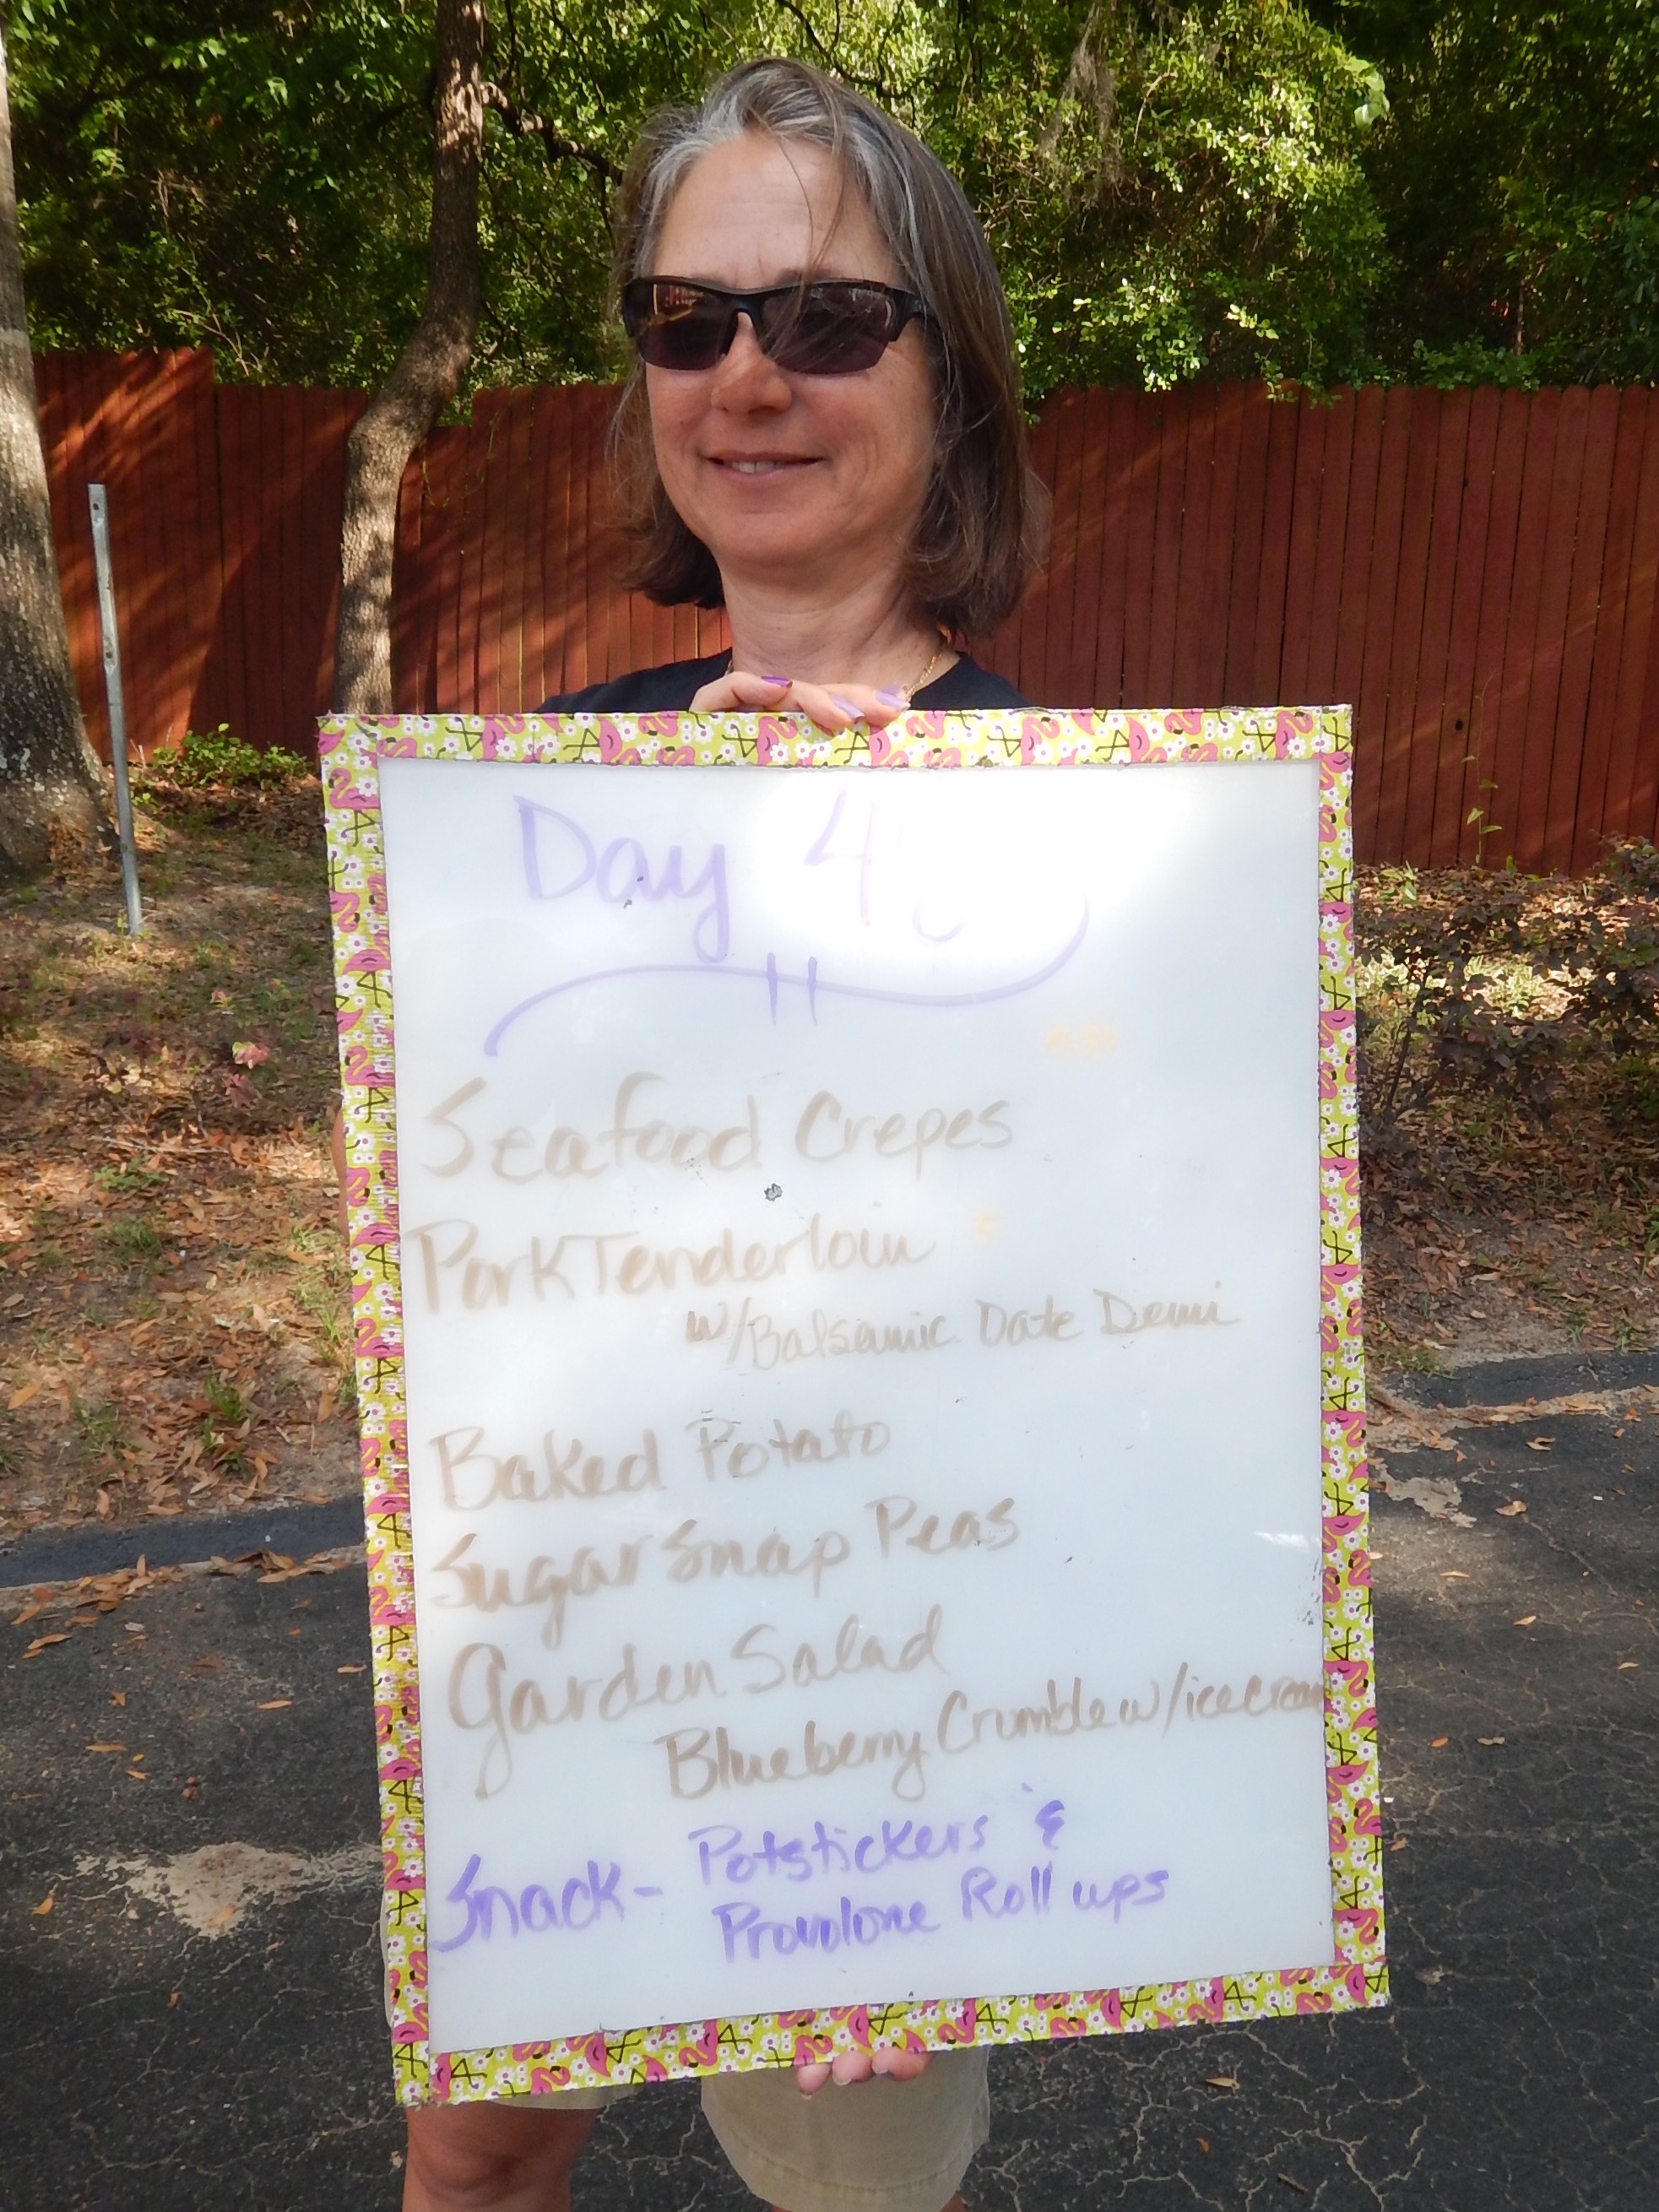 Day 4
Seafood Crepes
Pork Tenderloin
w/Balsamic Date Demi
Baked Potato
Sugar Snap Peas
Garden Salad
Blueberry Crumble w/icecream
Snack - Potstickers &
Provolone Roll ups